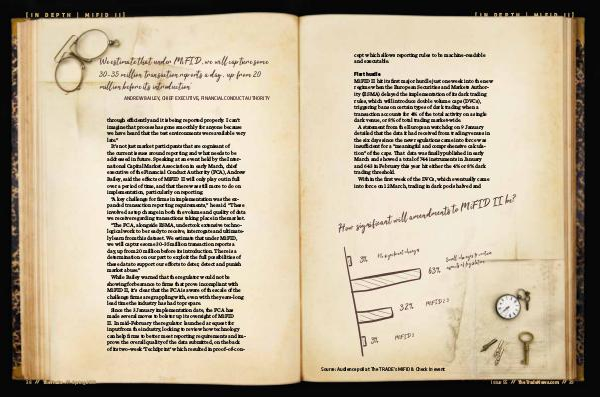 [IN DEPTH | MiFID II]
[IN DEPTH | MiFID II]
We estimate that under MiFID, we will capture some
30-35 million transaction reports a day, up from 20
million before its introduction
ANDREW BAILEY, CHIEF EXECUTIVE, FINANCIAL CONDUCT AUTHORITY
through efficiently and it is being reported properly. I can't
imagine that process has gone smoothly for anyone because
we have heard that the test environments were available very
late."
It's not just market participants that are cognisant of
the current issues around reporting and what needs to be
addressed in future. Speaking at an event held by the Inter-
national Capital Market Association in early March, chief
executive of the Financial Conduct Authority (FCA), Andrew
Bailey, said the effects of MiFID II will only play out in full
over a period of time, and that there was still more to do on
implementation, particularly on reporting.
"A key challenge for firms in implementation was the ex-
panded transaction reporting requirements," he said. "These
involved a step change in both the volume and quality of data
we receive regarding transactions taking place in the market.
"The FCA, alongside ESMA, undertook extensive techno-
logical work to be ready to receive, interrogate and ultimate-
ly learn from this dataset. We estimate that under MiFID,
we will capture some 30-35 million transaction reports a
day, up from 20 million before its introduction. There is a
determination on our part to exploit the full possibilities of
these data to support our efforts to deter, detect and punish
market abuse."
While Bailey warned that the regulator would not be
showing forbearance to firms that prove incompliant with
MiFID II, it's clear that the FCA is aware of the scale of the
challenge firms are grappling with, even with the year-long
lead time the industry has had to prepare.
Since the 3 January implementation date, the FCA has
made several moves to bolster up its oversight of MiFID
II. In mid-February the regulator launched a request for
input from the industry, looking to review how technology
can help firms to better meet reporting requirements and im-
prove the overall quality of the data submitted, on the back
of its two-week 'TechSprint' which resulted in proof-of-con-
cept which allows reporting rules to be machine-readable
and executable.
First hurdle
MiFID II hit its first major hurdle just one week into the new
regime when the European Securities and Markets Author-
ity (ESMA) delayed the implementation of its dark trading
rules, which will introduce double volume caps (DVCs),
triggering bans on certain types of dark trading when a
transaction accounts for 4% of the total activity on a single
dark venue, or 8% of total trading market-wide.
A statement from the European watchdog on 9 January
detailed that the data it had received from trading venues in
the six days since the new regulations came into effect was
insufficient for a "meaningful and comprehensive calcula-
tion" of the caps. That data was finally published in early
March and showed a total of 744 instruments in January
and 643 in February this year hit either the 4% or 8% dark
trading threshold.
Within the first week of the DVCs, which eventually came
into force on 12 March, trading in dark pools halved and
How significant will amendments to MiFID II be?
3% No significant change
63% Small changes to certain
aspects of legislation
32% MiFID 2.5
3% MiFID 3
Source: Audience poll at The TRADE's MiFID & Check In event
Issue 55 // TheTradeNews.com //